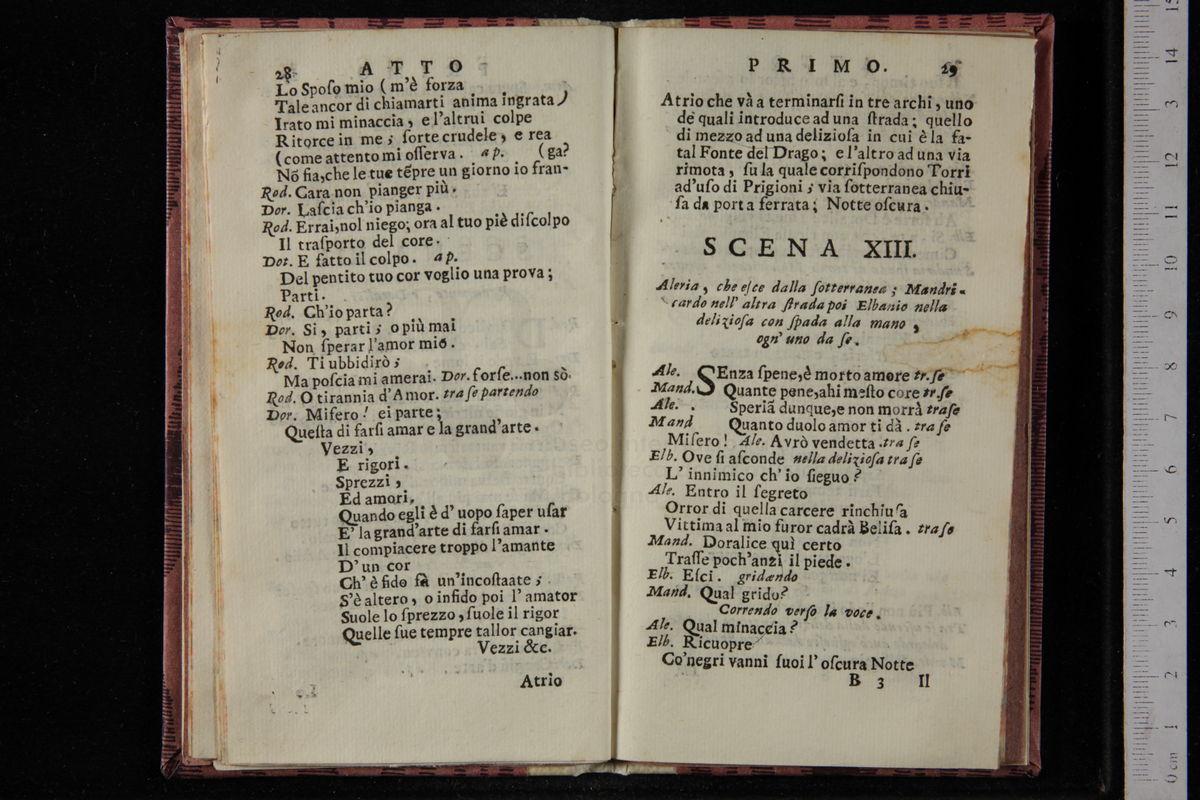 28 ATTO
Lo Spoſo mio (m'è forza
Tale ancor di chiamarti anima ingrata)
Irato mi minaccia, e l'altrui colpe
Ritorce in me; ſorte crudele, e rea
(come attento mi oſſerva. ap. (ga?
Nõ fia,che le tue tẽpre un giorno io fran-
Rod. Cara non pianger più.
Dor. Laſcia ch'io pianga.
Rod. Errai,nol niego; ora al tuo piè diſcolpo
Il traſporto del core.
Dot. E fatto il colpo. ap.
Del pentito tuo cor voglio una prova;
Parti.
Rod. Ch'io parta?
Dor. Si, parti; o più mai
Non ſperar l'amor mio.
Rod. Ti ubbidirò;
Ma poſcia mi amerai. Dor. forſe...non sò.
Rod. O tirannia d'Amor. tra ſe partendo
Dor. Miſero! ei parte;
Queſta di farſi amar e la grand'arte.
Vezzi,
E rigori.
Sprezzi,
Ed amori.
Quando egli è d'uopo ſaper uſar
E' la grand'arte di farſi amar.
Il compiacere troppo l'amante
D'un cor
Ch'è fido fà un'incoſtaate;
S'è altero, o infido poi l'amator
Suole lo ſprezzo, ſuole il rigor
Quelle ſue tempre tallor cangiar.
Vezzi &c.
Atrio
PRIMO. 29
Atrio che và a terminarſi in tre archi, uno
de quali introduce ad una ſtrada; quello
di mezzo ad una delizioſa in cui è la fa-
tal Fonte del Drago; e l'altro ad una via
rimota, ſu la quale corriſpondono Torri
ad'uſo di Prigioni; via ſotterranea chiu-
ſa da porta ferrata; Notte oſcura.
SCENA XIII.
Aleria, che eſce dalla ſotterranea; Mandri-
cardo nell' altra ſtrada poi Elbanio nella
delizioſa con ſpada alla mano,
ogn' uno da ſe.
Ale. SEnza ſpene,è morto amore tr.ſe
Mand. Quante pene,ahi meſto core tr.ſe
Ale. . Speriã dunque,e non morrà traſe
Mand Quanto duolo amor ti dà. tra ſe
Miſero! Ale. Avrò vendetta .tra ſe
Elb. Ove ſi aſconde nella delizioſa tra ſe
L' innimico ch' io ſieguo?
Ale. Entro il ſegreto
Orror di quella carcere rinchiuſa
Vittima al mio furor cadrà Beliſa. traſe
Mand. Doralice quì certo
Traſſe poch'anzi il piede.
Elb. Eſci. gridando
Mand. Qual grido?
Correndo verſo la voce.
Ale. Qual minaccia?
Elb. Ricuopre
Co'negri vanni ſuoi l' oſcura Notte
B 3 Il